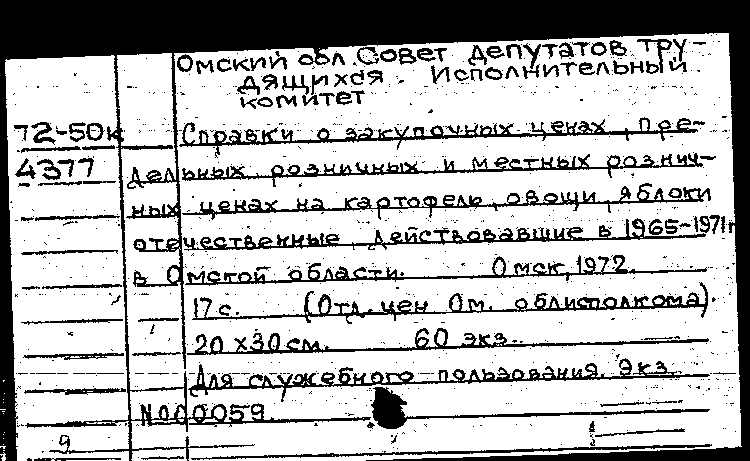 Омский обл. Совет депутатов тру-
дящихся. Исполнительный
комитет
72-50к Справки о закупочных ценах, пре-
4377 дельных розничных и местных рознич-
ных ценах на картофель, овощи, яблоки
отечественные, действовавшие в 1965-1971г
в Омской области. Омск, 1972.
17 с. (Отд. цен Ом. облисполкома).
20 х 30 см. 60 экз.
Для служебного пользования. Экз.
N000059.
9